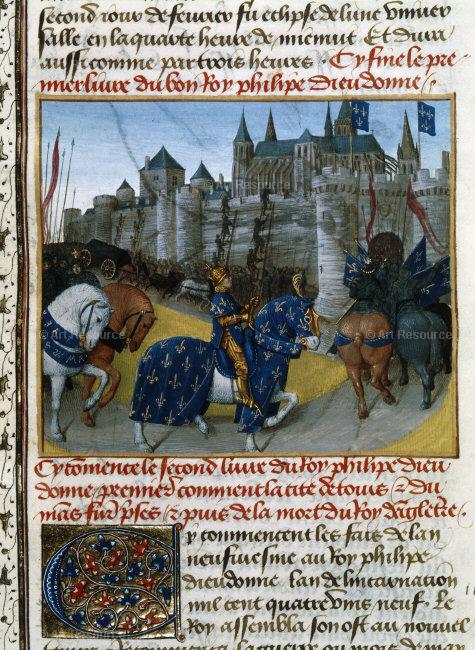 second iour de feurier fu eclipse de lune vniuer
salle en la quarte heure de mienuit Et dura
aussi comme par trois heures · Cy fine le pre
mier liure du bon Roy philipe dieudonne ·
© Art Resource
© Art Resource
Cy comence le second liure du Roy philipe dieu
donne premier comment la cite de tours et du
mans furent prises et puis de la mort du Roy dangletre ·
Cy commencent les fais de lan
neufuiesme au Roy philipe
dieudonne lan de lincarnation
mil cent quatre vins neuf · Le
Roy assembla son ost au nouuel